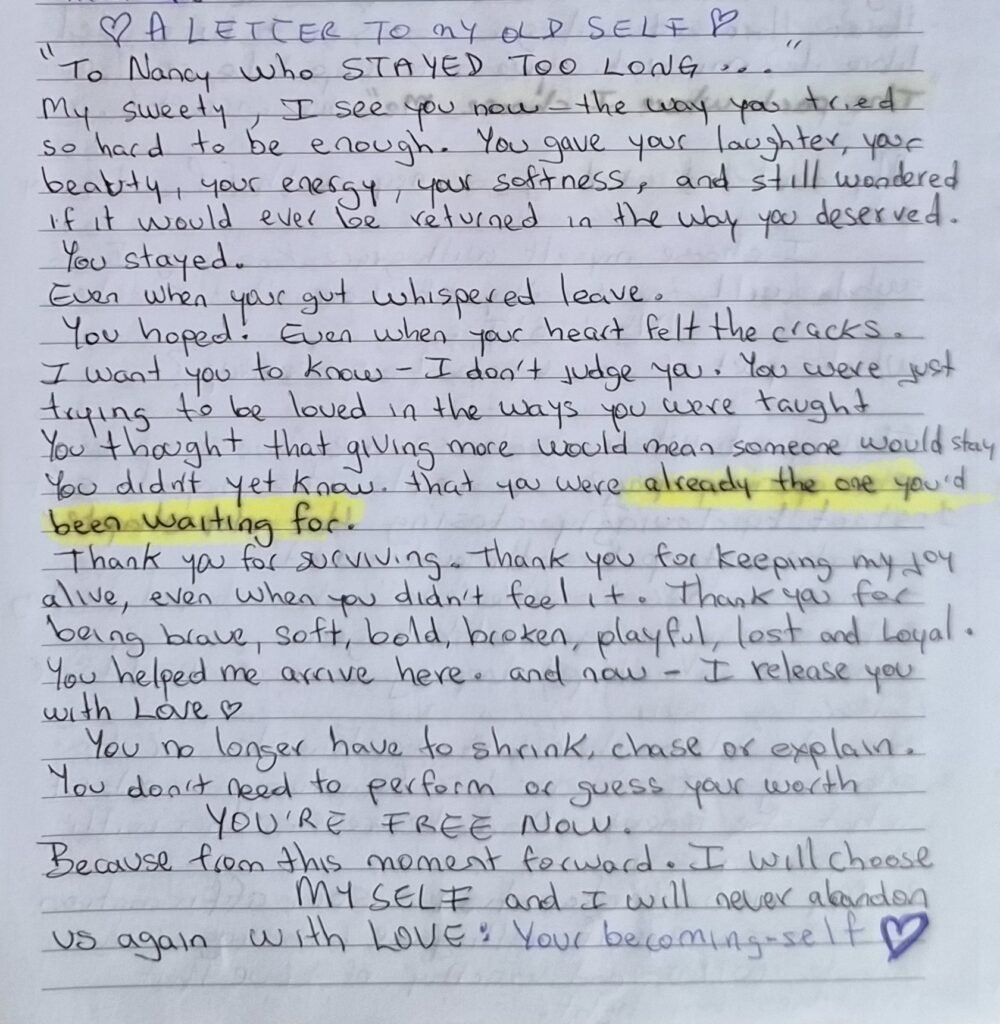 ♡ A LETTER TO MY OLD SELF ♡
"To Nancy who STAYED TOO LONG ... "
My sweety, I see you now - the way you tried
so hard to be enough. You gave your laughter, your
beauty, your energy, your softness, and still wondered
if it would ever be returned in the way you deserved.
You stayed.
Even when your gut whispered leave.
You hoped! Even when your heart felt the cracks.
I want you to know - I don't judge you. You were just
trying to be loved in the ways you were taught
You thought that giving more would mean someone would stay
You didn't yet know. that you were already the one you'd
been waiting for.
Thank you for surviving. Thank you for keeping my joy
alive, even when you didn't feel it. Thank you for
being brave, soft, bold, broken, playful, lost and Loyal.
You helped me arrive here. and now - I release you
with Love ♡
You no longer have to shrink, chase or explain.
You don't need to perform or guess your worth
YOU'RE FREE NOW.
Because from this moment forward. I will choose
MYSELF and I will never abandon
us again with LOVE: Your becoming-self ♡